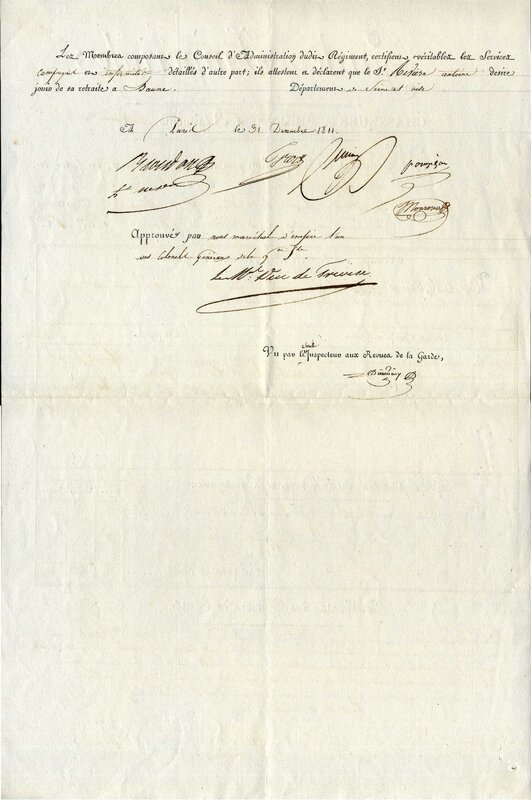 Les Membres composant le Conseil d'Administration dudit Régiment, certifient véritables les Services
campagnes et infirmités détaillés d'autre part; ils attestent et déclarent que le Sr. antoine desire
jouir de sa retraite a Département de Seine et oise
A Paris le 31 Decembre 1811.
Approuvé par nous maréchal d'empire l'un
des Colonels Généraux de la Gde Ile
le Mal Duc de Trévise
Vu par l'Inspecteur aux Revues de la Garde,